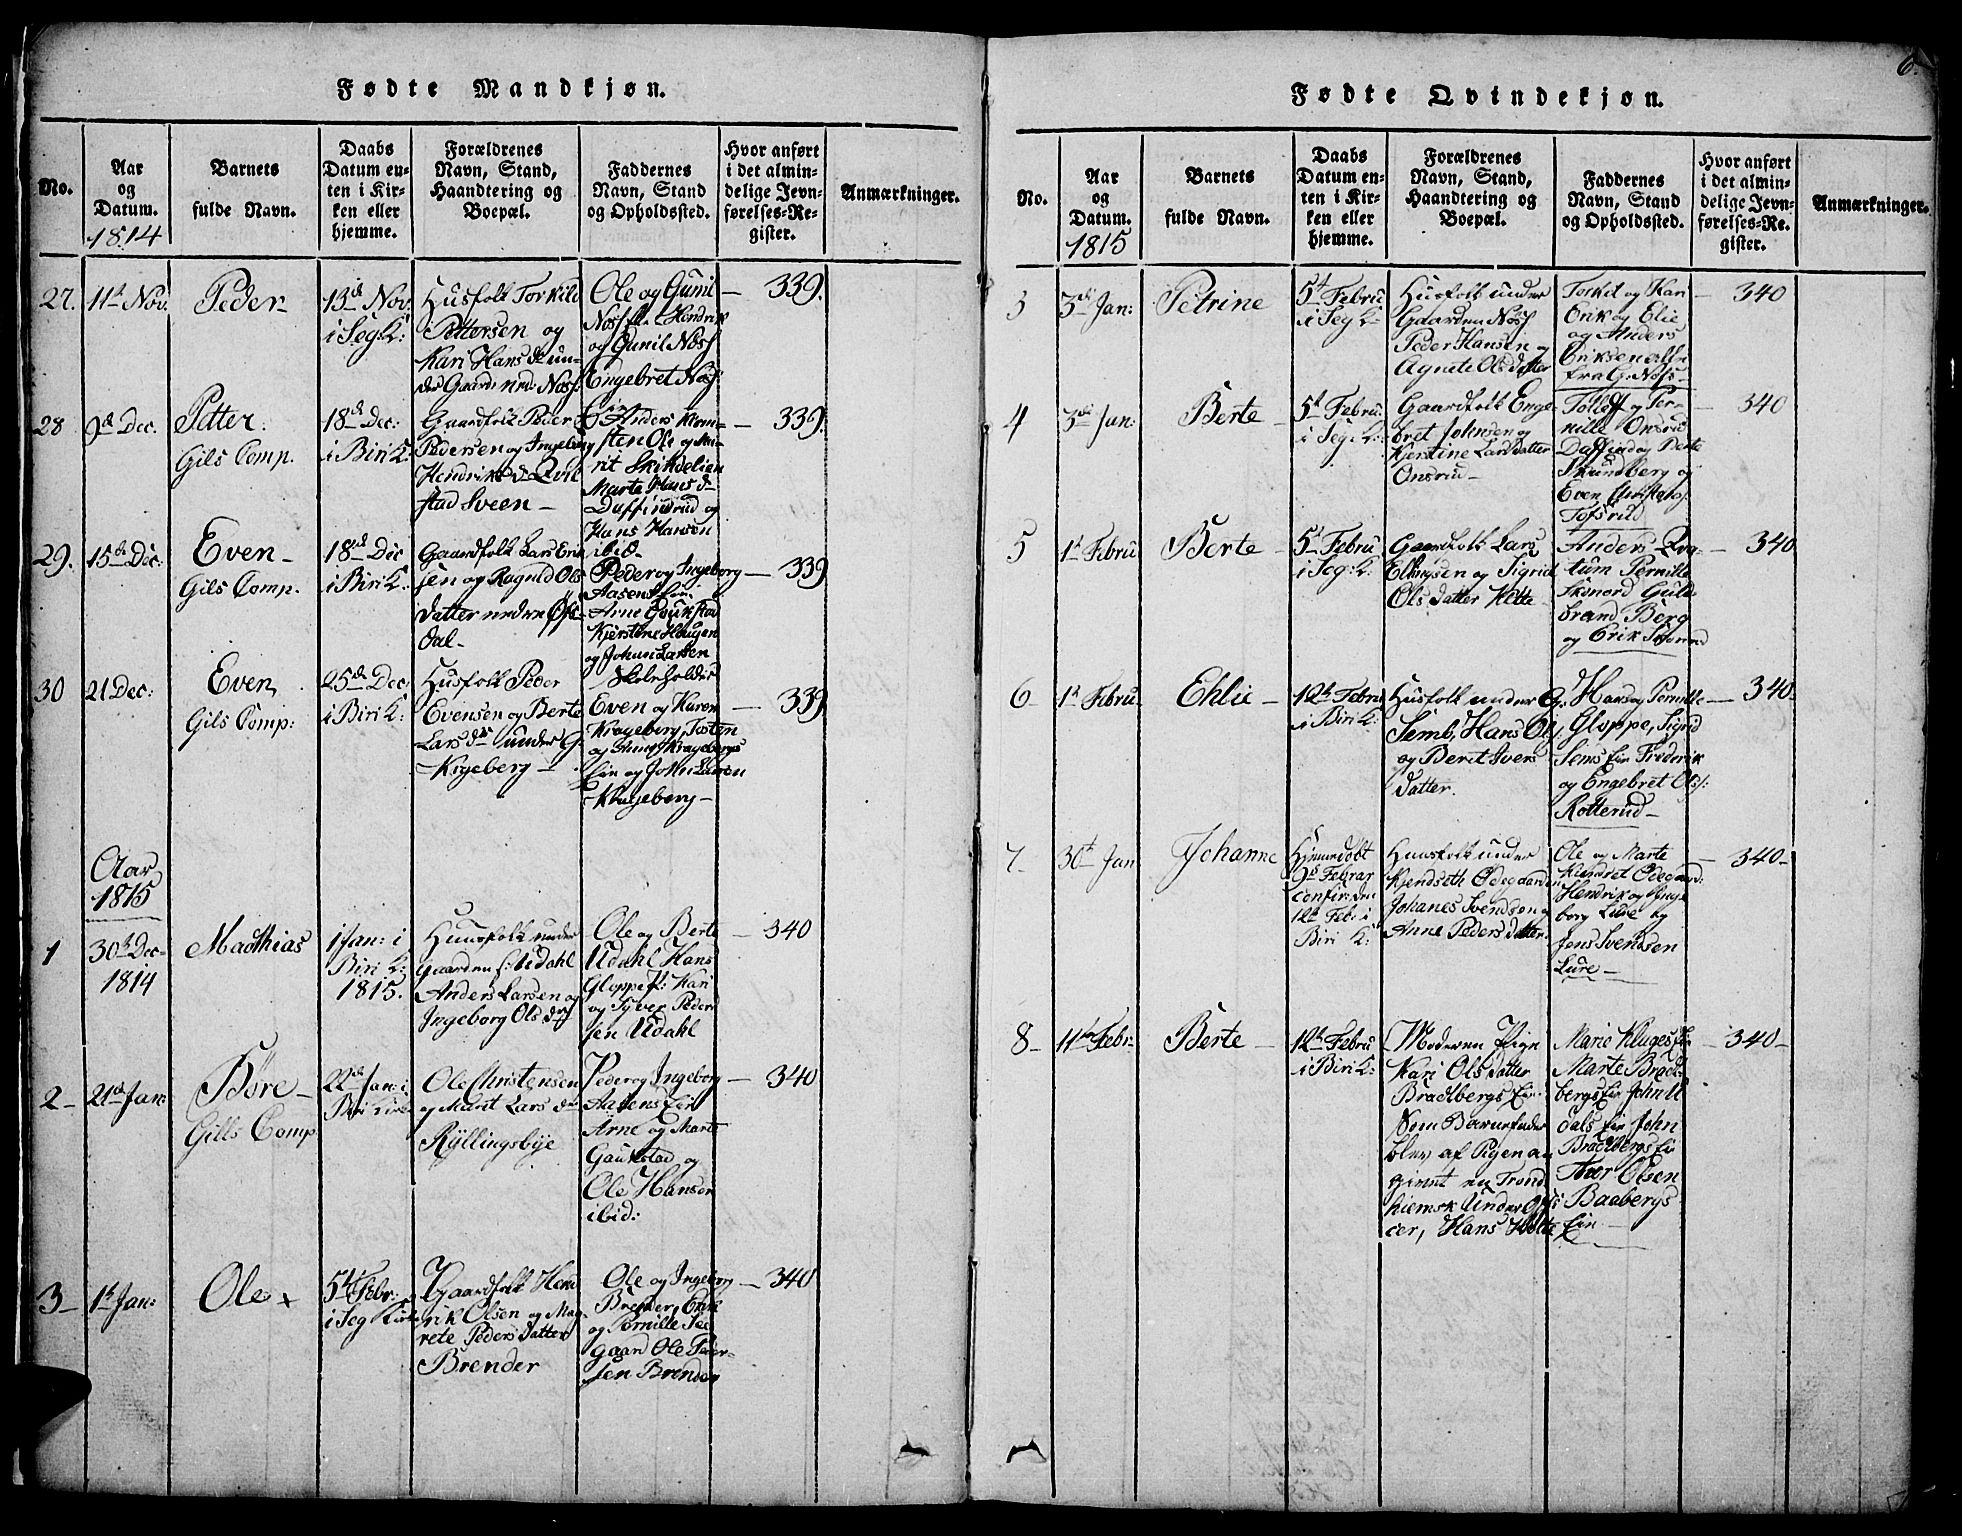 Fødte Mandkjøn.
No.
Aar
og
Datum.
1814
Barnets
fulde Navn.
Daabs
Datum en-
ten i Kir-
ken eller
hjemme.
Forældrenes
Navn, Stand,
Haandtering og
Boepæl.
Faddernes
Navn, Stand
og Opholdssted.
Hvor anført
i det almin-
delige Jevn-
førelses-Re-
gister.
Anmærkninger.
27.
11t Nov.
Peder
13d Nov.
i Seg: K:
Husfolk Torkild
Pettersen og
Kari Hans dr un-
der Gaarden Næss:
Ole og Gunil
Næss Hendrik
og Gunil Næss
Engebret Næss
339.
28
9d Dec.
Petter.
Gils Comp.
18d Dec:
i Biri K:
Gaardfolk Peder
Pedersen og Ingeborg
Hendriks d: Qvil
stad Sveen
Anders
sten Ole og Ma-
rit Skikdelien
Marte Hans d
Daffindrud og
Hans Hansen
ibid
339.
29.
15d Dec:
Even
Gils Comp.
18d Dec
i Biri K:
Gaardfolk Lars Erik
sen og Ragnild Ols
datter nedre
dal
Peder og Ingeborg
Aasens Ein
Arne Goukstad
Kjerstine Haugen
og Johan Larsen
Skoleholder
339
30
21 Dec:
Even
Gils Comp:
25d Dec:
i Biri K:
Husfolk Peder
Evensen og Berte
Lars dr under G:
Krageberg
Even og Karen
Krageberg, Tosten
og Kragebergs
Ein og John Larsen
Krageberg
339
Aar
1815
1
30t Dec
1814
Matthias
1 Jan: i
Biri K:
1815.
Huusfolk under
Gaarden s: Udahl
Anders Larsen og
Ingeborg Ols dr
Ole og Berte
Udahl Hans
Gloppe P: Kari
og Syver Peder
sen Udahl
340
2
21d Jan:
Børe
Gills Comp
22d Jan: i
Biri Kirke
Ole Christensen
og Marit Lars dr
Ryllingsbye
Peder og Ingeborg
Aasens Ein
Arne og Marte
Gaukstad og
Ole Hansen
ibid:
340
3
1t Jan:
Ole
5t Febr:
i Seg Kirke
Gaardfolk Hend
rik Olsen og Mag
rete Peders datter
Brender
Ole og Ingeborg
Brender, Erik
og Pernille See
gaard Ole Peder
sen Brender
340
6.
Fødte Qvindekjøn.
No.
Aar
og
Datum.
1815
Barnets
fulde Navn.
Daabs
Datum en-
ten i Kir-
ken eller
hjemme.
Forældrenes
Navn, Stand,
Haandtering og
Boepæl.
Faddernes
Navn, Stand
og Opholdssted.
Hvor anført
i det almin-
delige Jevn-
førelses-Re-
gister.
Anmærkninger.
3
3d Jan:
Petrine
5t Febru
i Seg K
Husfolk under
Gaarden Næss
Peder Hansen og
Agnete Olsdatter
Torkil og Kari
Erik og Elie
og Anders
Eriksen alle
fra G: Næss
340
4
3d Jan:
Berte
5t Febru:
i Seg: K:
Gaardfolk Enge
bret Johnsen og
Kjerstine Lars datter
Onsrud
Tollef og Per-
nille Onsrud
Daffind og Berte
Skundberg og
Even
Tofsrild
340
5
1t Febru
Berte
5t Febru
i Seg: K:
Gaardfolk Lars
Ellingsen og Sigrid
Ols datter Hette
Anders
tum Pernille
Skonord Guld
brand Berg
og Erik Skonord
340
6
1t Febru:
Ehlie
12t Febru
i Biri K:
Husfolk under G:
Semb, Hans Ols
og Berit Ivers
datter.
Hans og Pernille
Gloppe, Sigrid
Sems Ein Frederik
og Engebret Ols:
Rotterud
340.
7
30t Jan
Johanne
Hjemmedøbt
9d Febrar
confir: den
12t Feb: i
Biri K:
Huusfolk under
Kjendseth Ødegaarden
Johanes Svendsen og
Anne Peders datter
Ole og Marte
Ødegaard:
Hendrik og Inge
borg Lure og
Jens Svendsen
Lure
340
8
11t Febr:
Berte
12t Febru
i Biri K:
Moderen Pige
Kari Ols datter
Bradbergs Ein
Som Barnefader
blev af Pigen an
givet en Trond
hiemsk Under Offi
cer, Hans Holte
Marie Kluges Ein
Marte Brad
bergs Ein John U
dals Ein John
Bradbergs Ein
Iver Olsen
Baabergs
Ein
340